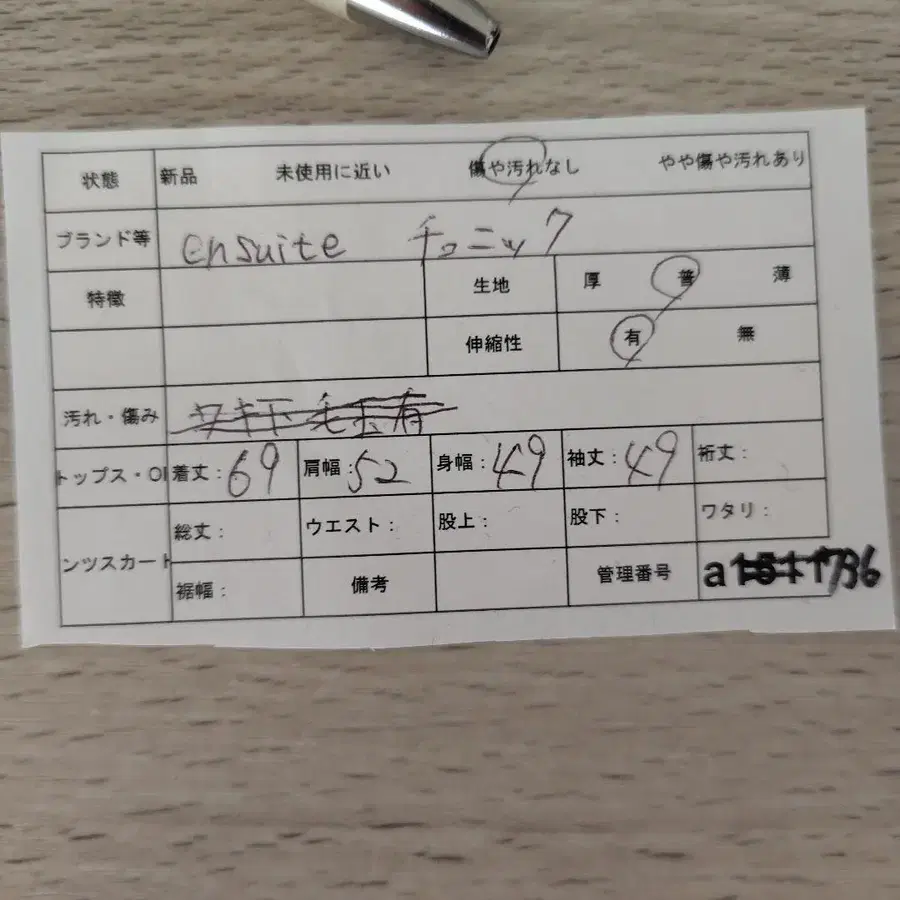 状態 新品 未使用に近い 傷や汚れなし やや傷や汚れあり
ブランド等 ensuite チュニック
特徴 生地 厚 普 薄
伸縮性 有 無
汚れ・傷み 毛玉有
トップス・OP 着丈:69 肩幅:52 身幅:49 袖丈:49 裄丈:
ンツスカート 総丈: ウエスト: 股上: 股下: ワタリ:
裾幅: 備考 管理番号